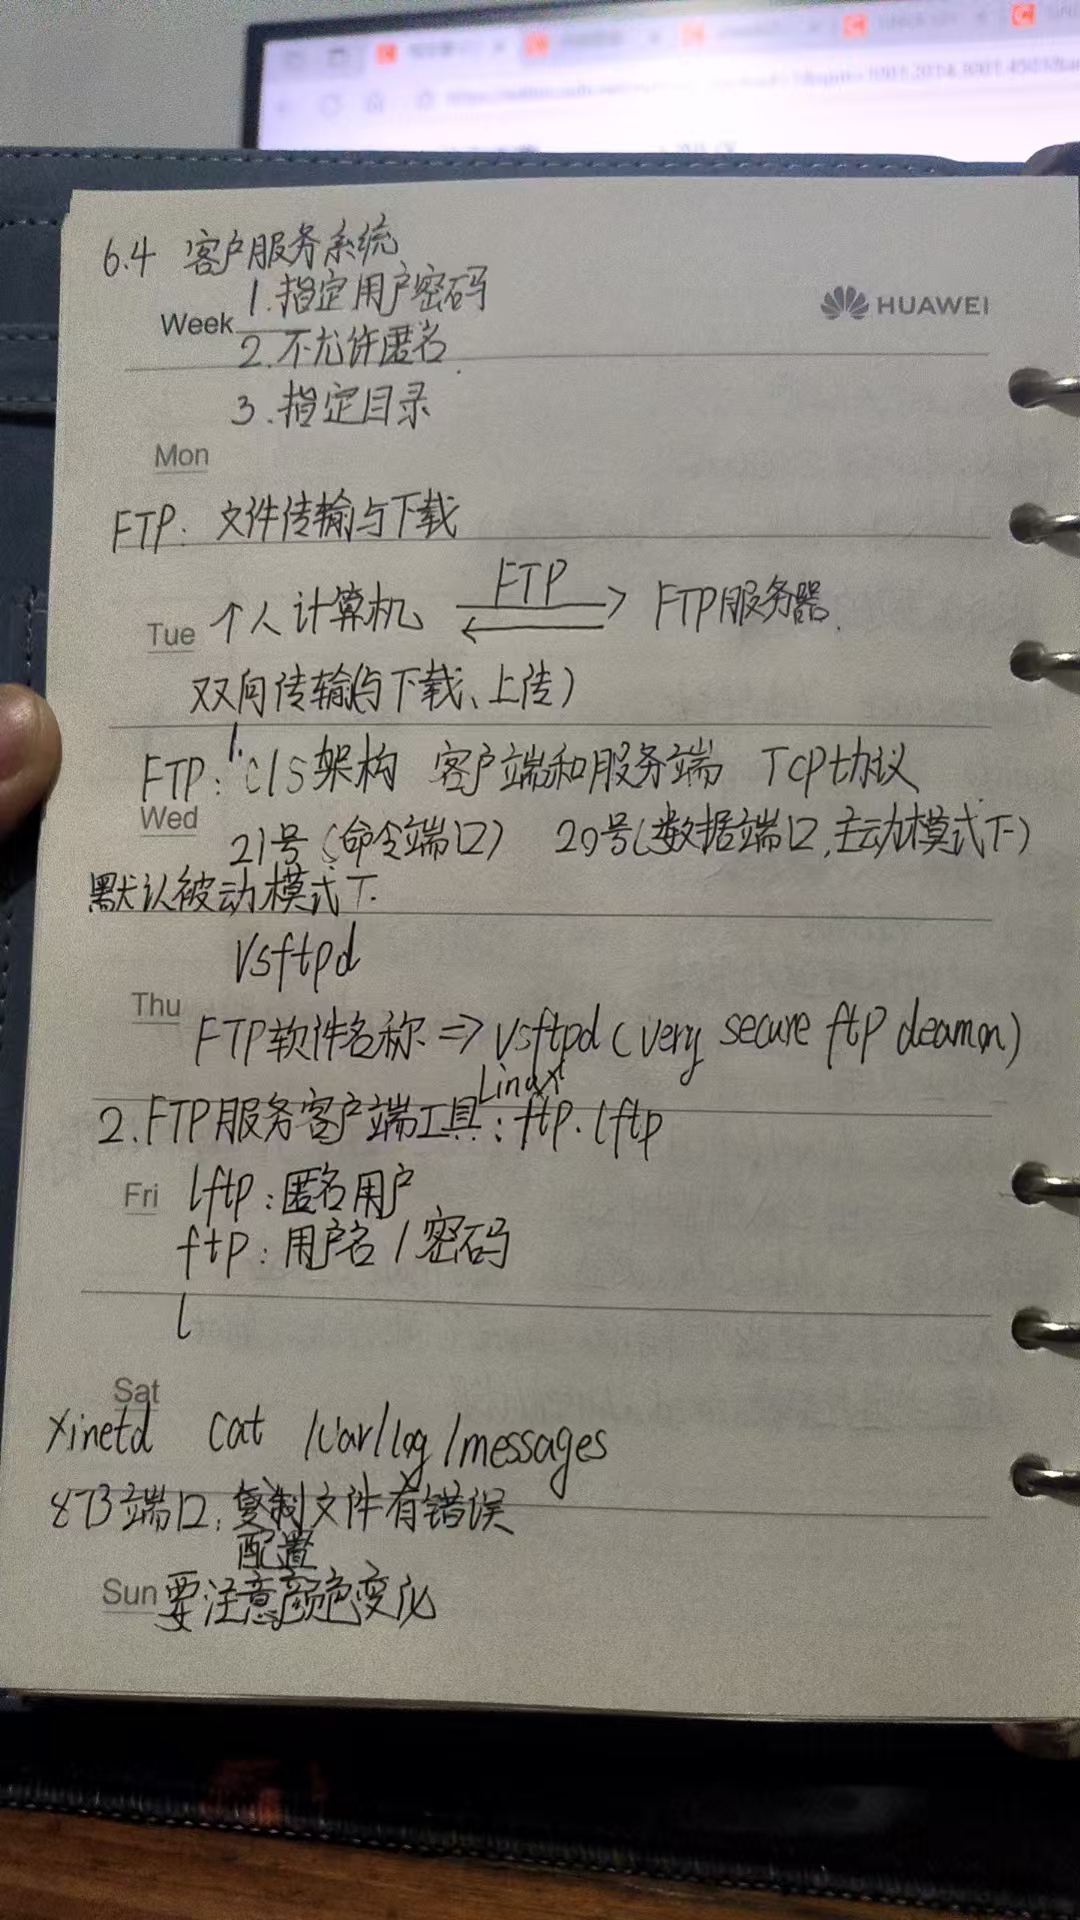 6.4 客户服务系统
1.指定用户密码
HUAWEI
Week
2.不允许匿名.
3.指定目录
Mon
FTP: 文件传输与下载
FTP
Tue 个人计算机 FTP服务器.
双向传输(与下载、上传)
FTP: 1. C/S架构 客户端和服务端 TCP协议
Wed
21号(命令端口) 20号(数据端口,主动模式下)
默认被动模式下.
Vsftpd
Thu
FTP软件名称 => vsftpd (very secure ftp deamon)
Linux
2.FTP服务客户端工具: ftp. lftp
Fri lftp:匿名用户
ftp: 用户名/密码
l
Sat
xinetd cat /var/log/messages
873端口: 复制文件有错误
配置
Sun 要注意颜色变化